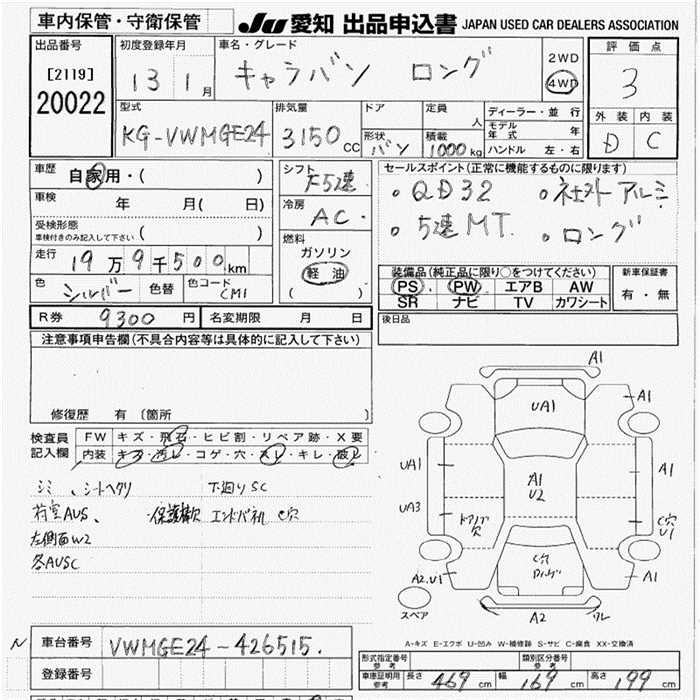 車内保管・守衛保管
JU 愛知 出品申込書 JAPAN USED CAR DEALERS ASSOCIATION
出品番号
[2119]
20022
初度登録年月
13 1月
車名・グレード
キャラバン ロング
2WD
4WD
評価点
3
外装 内装
D C
型式
KG-VWMGE24
排気量
3150CC
ドア
形状
バン
定員
人
積載
1000kg
ディーラー・並行
モデル年式 年
ハンドル 左・右
車歴
自家用・( )
車検 年 月( 日)
受検形態
車検付きのみ記入して下さい ( )
走行 19万9千500km
色 シルバー 色替 色コード CM1
シフト
F5速
冷房
AC
燃料
ガソリン
軽油
( )
セールスポイント(正常に機能するものに限ります)
・QD32 ・社外アルミ
・5速MT. ・ロング
装備品(純正品に限り○をつけてください)
PS PW エアB AW
SR ナビ TV カワシート
新車保証書
有・無
R券 9300円 名変期限 月 日
後日品
注意事項申告欄(不具合内容等は具体的に記入して下さい)
修復歴 有〔箇所 〕
検査員記入欄
FW キズ・飛石・ヒビ割・リペア跡・X要
内装 キズ・汚レ・コゲ・穴・スレ・キレ・破レ
シミ、シートヘタリ 下廻りSC
荷室AUS、 エンドパネル C穴
左側面W2
各AUSC
A1
UA1
A1
UA1
A1
U2
UA3
ドア内ノブ穴
C穴
U1
C穴
A2.U1
A1
A2
ワレ
スペア
A-キズ E-エクボ U-凹み W-補修跡 S-サビ C-腐食 XX-交換済
N
車台番号 VWMGE24-426515.
登録番号
形式指定番号 参考
類別区分番号 参考
車庫証明用 参考 長さ 469cm 幅 169cm 高さ 199cm